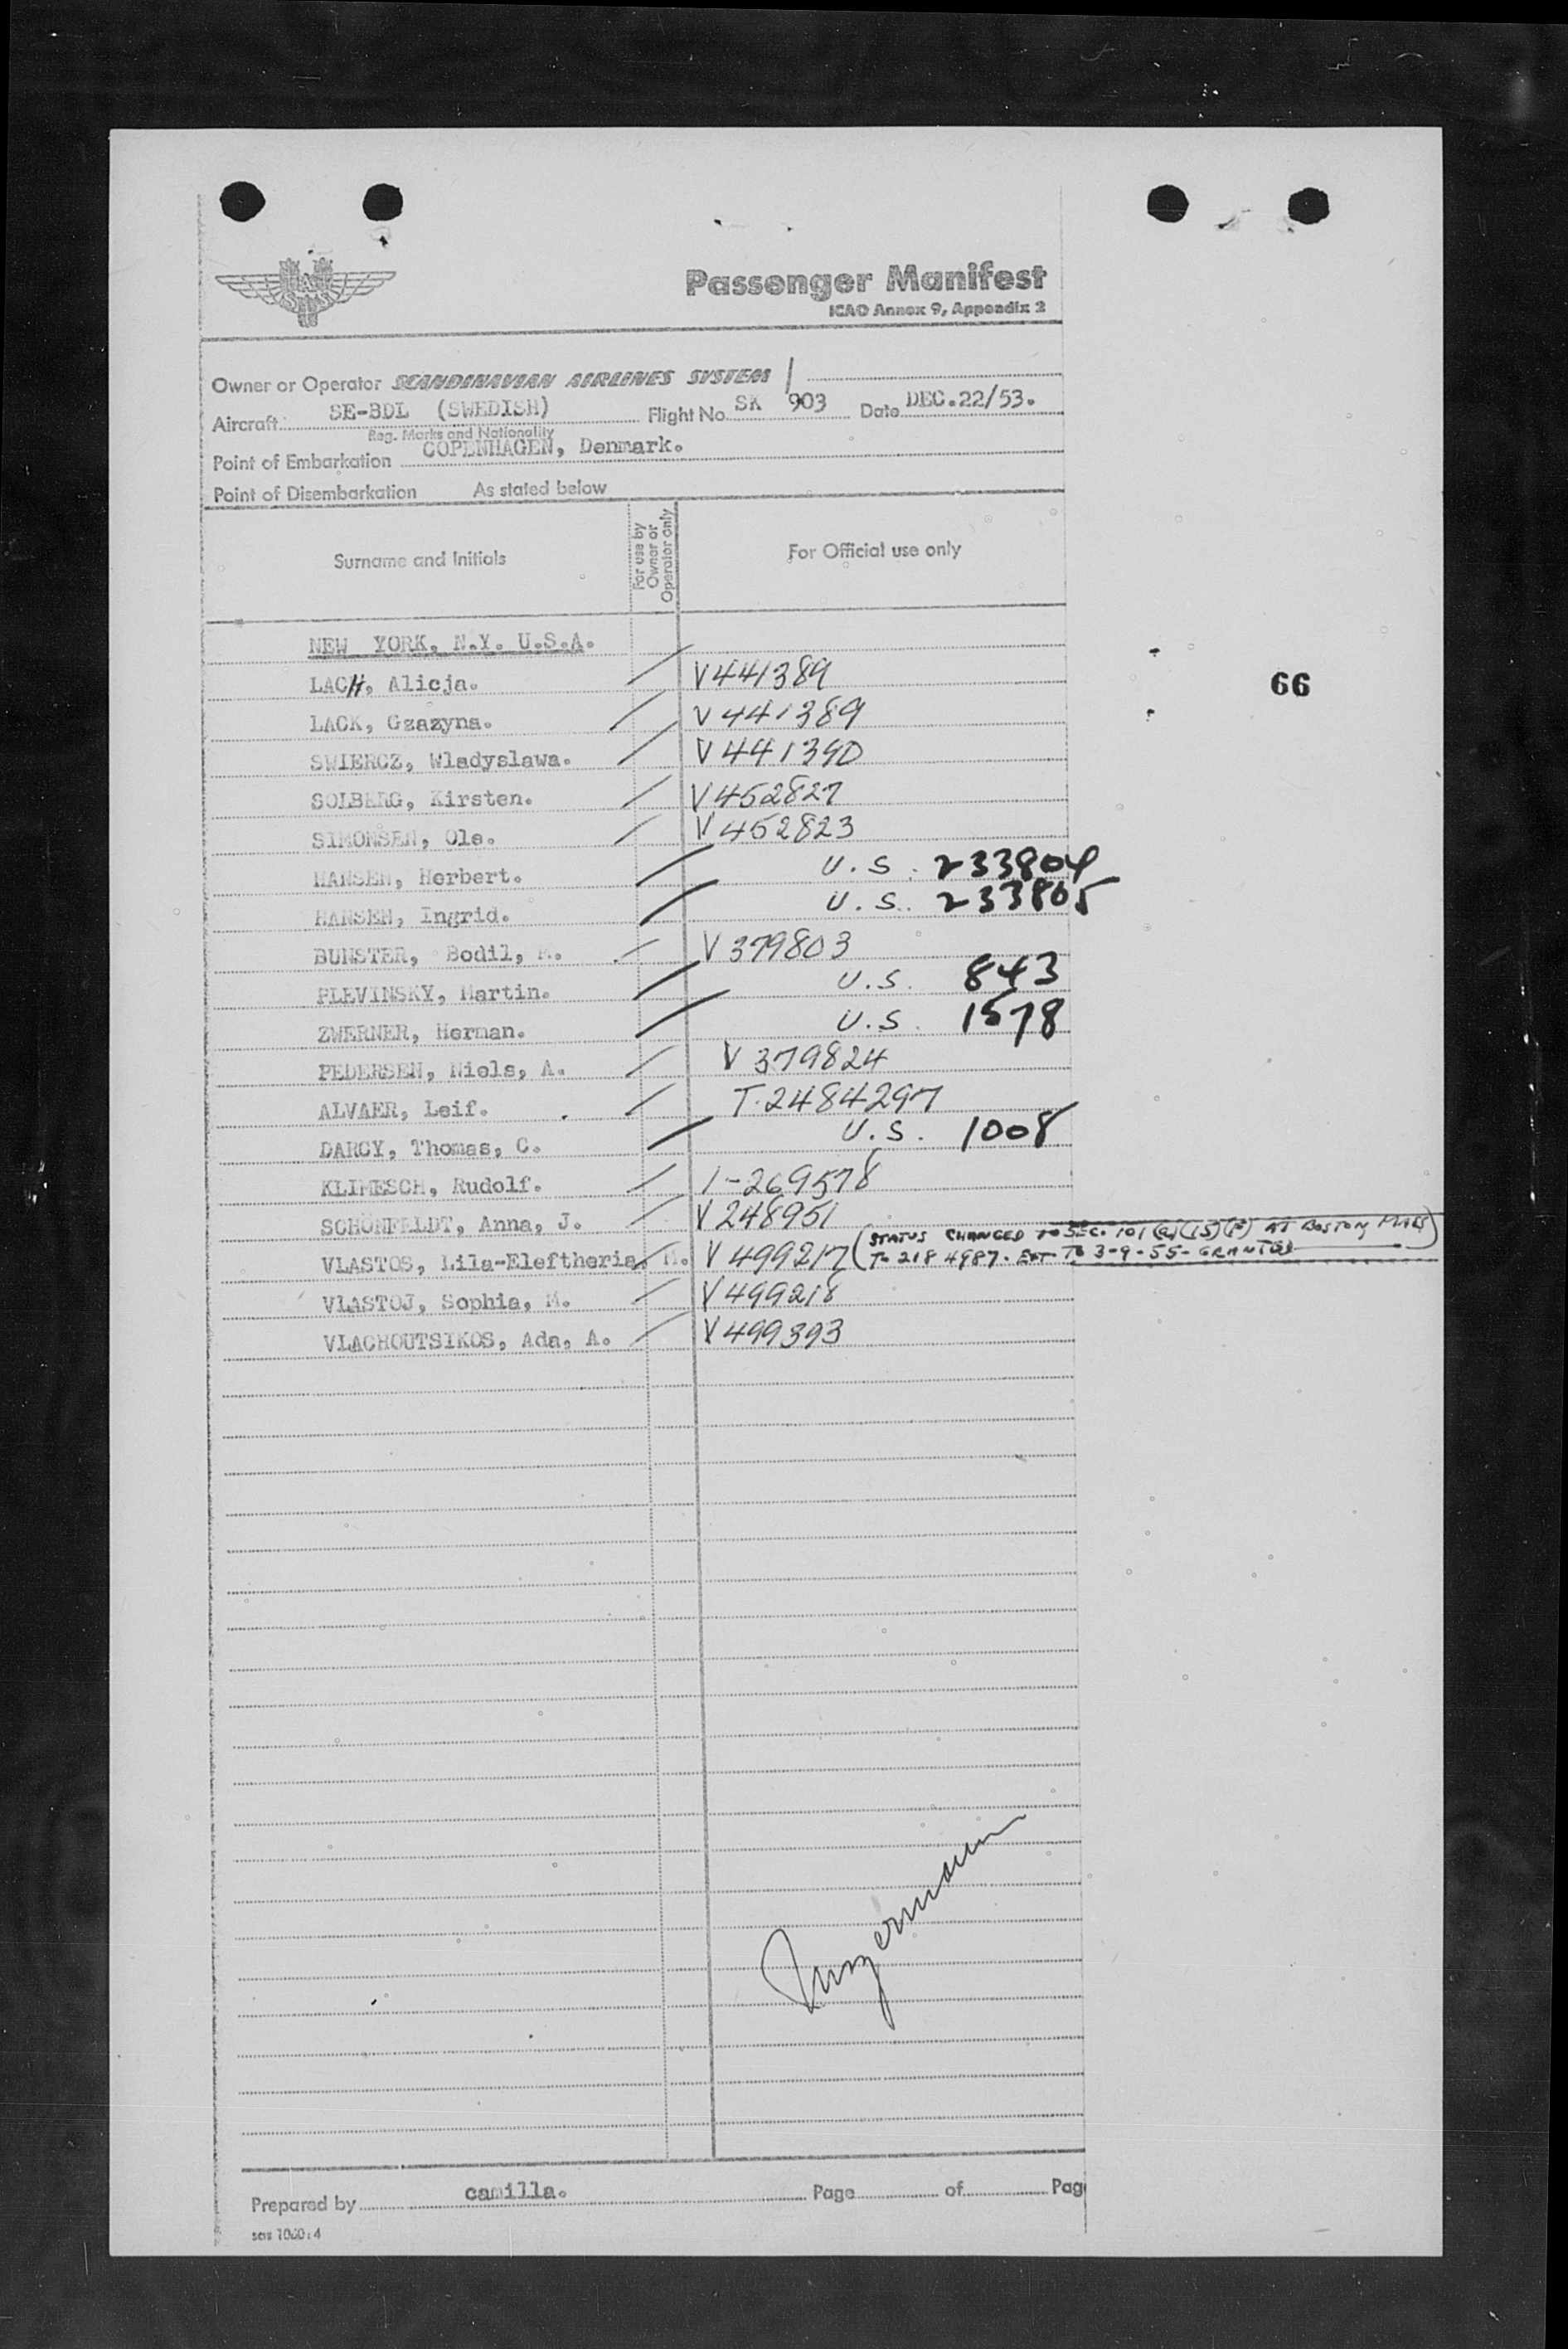 SAS
Passenger Manifest
ICAO Annex 9, Appendix 2
Owner or Operator SCANDINAVIAN AIRLINES SYSTEM
Aircraft SE-BDL (SWEDISH) Flight No. SK 903 Date DEC.22/53.
Reg. Marks and Nationality
Point of Embarkation COPENHAGEN, Denmark.
Point of Disembarkation As stated below
Surname and Initials For use by Owner or Operator only For Official use only
NEW YORK, N.Y. U.S.A.
LACH, Alicja. / V441389
66
LACK, Gzazyna. / V441389
SWIERCZ, Wladyslawa. / V441390
SOLBERG, Kirsten. / V452827
SIMONSEN, Ole. / V452823
HANSEN, Herbert. / U.S. 233804
HANSEN, Ingrid. / U.S. 233805
BUNSTER, Bodil, / V379803
PLEVINSKY, Martin. / U.S. 843
ZWERNER, Herman. / U.S. 1578
PEDERSEN, Niels, A. / V 379824
ALVAER, Leif. / T-2484297
DARCY, Thomas, C. / U.S. 1008
KLIMESCH, Rudolf. / 1-269578
SCHONFELDT, Anna, J. / V248951
VLASTOS, Lila-Eleftheria, M. / V499217 (STATUS CHANGED TO SEC. 101 (a)(15)(F) AT BOSTON MASS)
T-2184987. EXT. TO 3-9-55- GRANTED
VLASTOJ, Sophia, M. / V499218
VLACHOUTSIKOS, Ada, A. / V499393
Prepared by camilla. Page of Pag
sas 1000:4